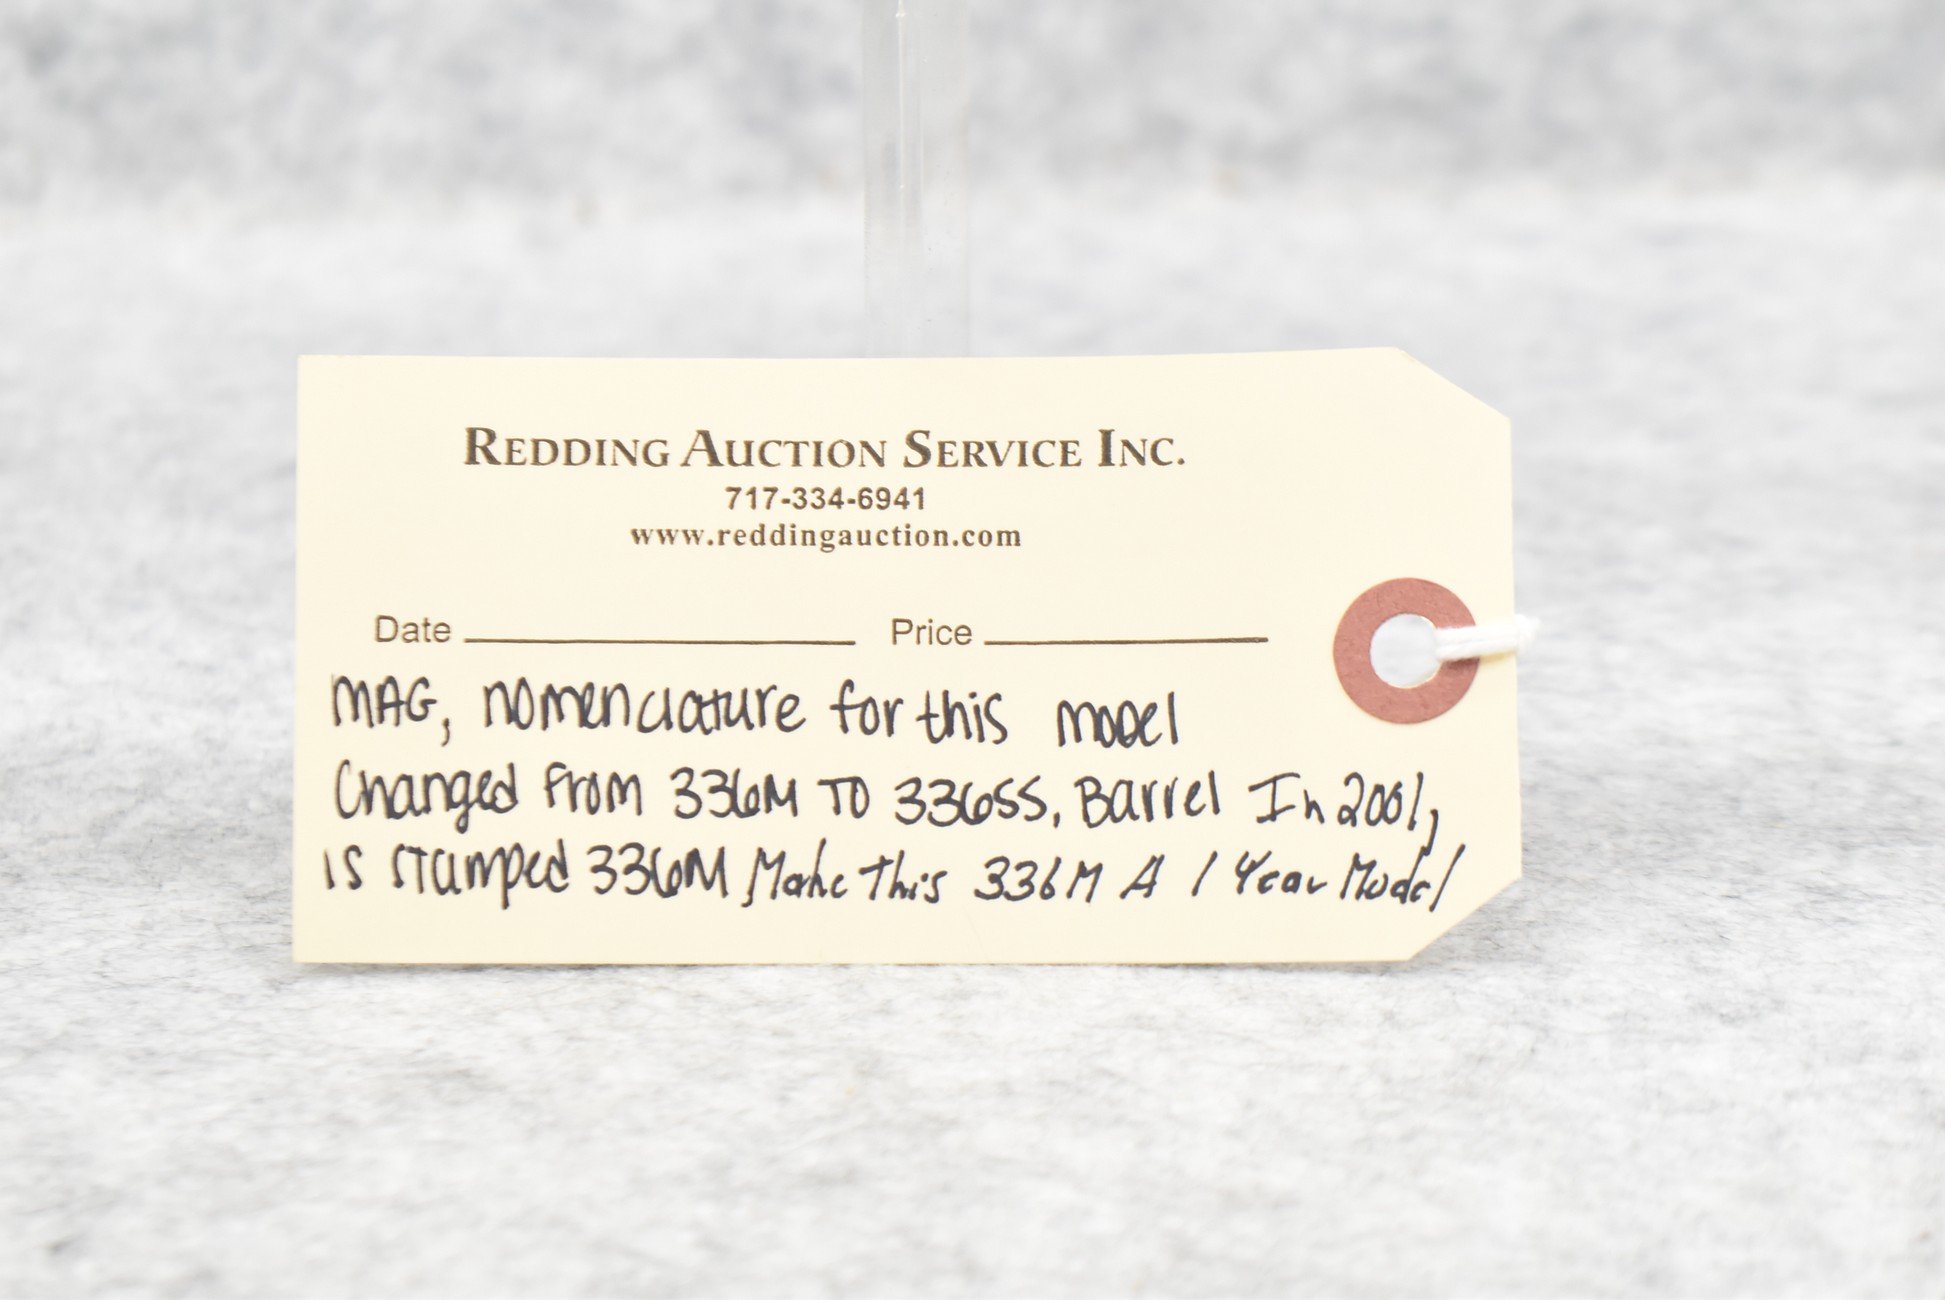 REDDING AUCTION SERVICE INC.
717-334-6941
www.reddingauction.com
Date Price
MAG, nomenclature for this model
Changed from 336M TO 336SS, Barrel In 2001,
is stamped 336M Make This 336M A 1 Year Model